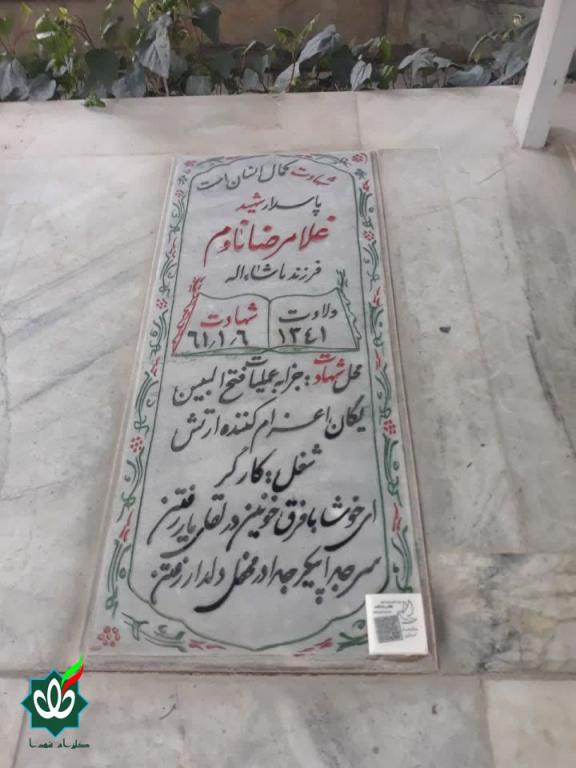 شهادت کمال انسان است
پاسدار شهید
غلامرضا نادم
فرزند ماشاءاله
ولادت
۱۳٤۱
شهادت
۶۱٫۱٫۶
محل شهادت: جزابه عملیات فتح المبین
یگان اعزام کننده ارتش
شغل: کارگر
ای خوشا با فرق خونین در لقای یار رفتن
سر جدا پیکر جدا در محفل دلدار رفتن
گلزار شهدا